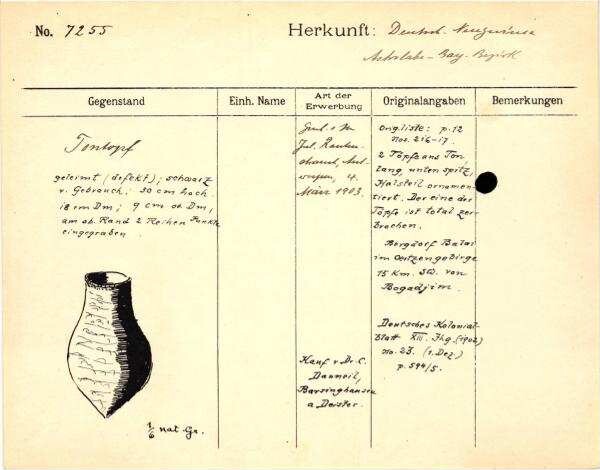 No. 7255
Herkunft: Deutsch. Neuguinea
Astrolabe-Bay-Bezirk
Gegenstand
Einh. Name
Art der
Erwerbung
Originalangaben
Bemerkungen
Tontopf
geleimt (defekt); schwarz
v. Gebrauch; 30 cm hoch
18 cm Dm; 9 cm ob. Dm,
am ob. Rand 2 Reihen Punkte
eingegraben.
1/6 nat. Gr.
Jul.
4.
März 1903
Kauf v. Dr. C.
Barsinghausen
a Deister.
Orig. liste: p. 12
Nos. 216-17.
2 Töpfe aus Ton,
lang, unten spitz,
Halsteil ornamen-
tiert. Der eine der
Töpfe ist total zer-
brochen.
Bergdorf Balai
im Oertzengebirge
15 Km. SW. von
Bogadjim.
Deutsches Kolonial-
blatt XIII. Jhg. (1902)
No. 23. (1. Dez.)
p. 594/5.